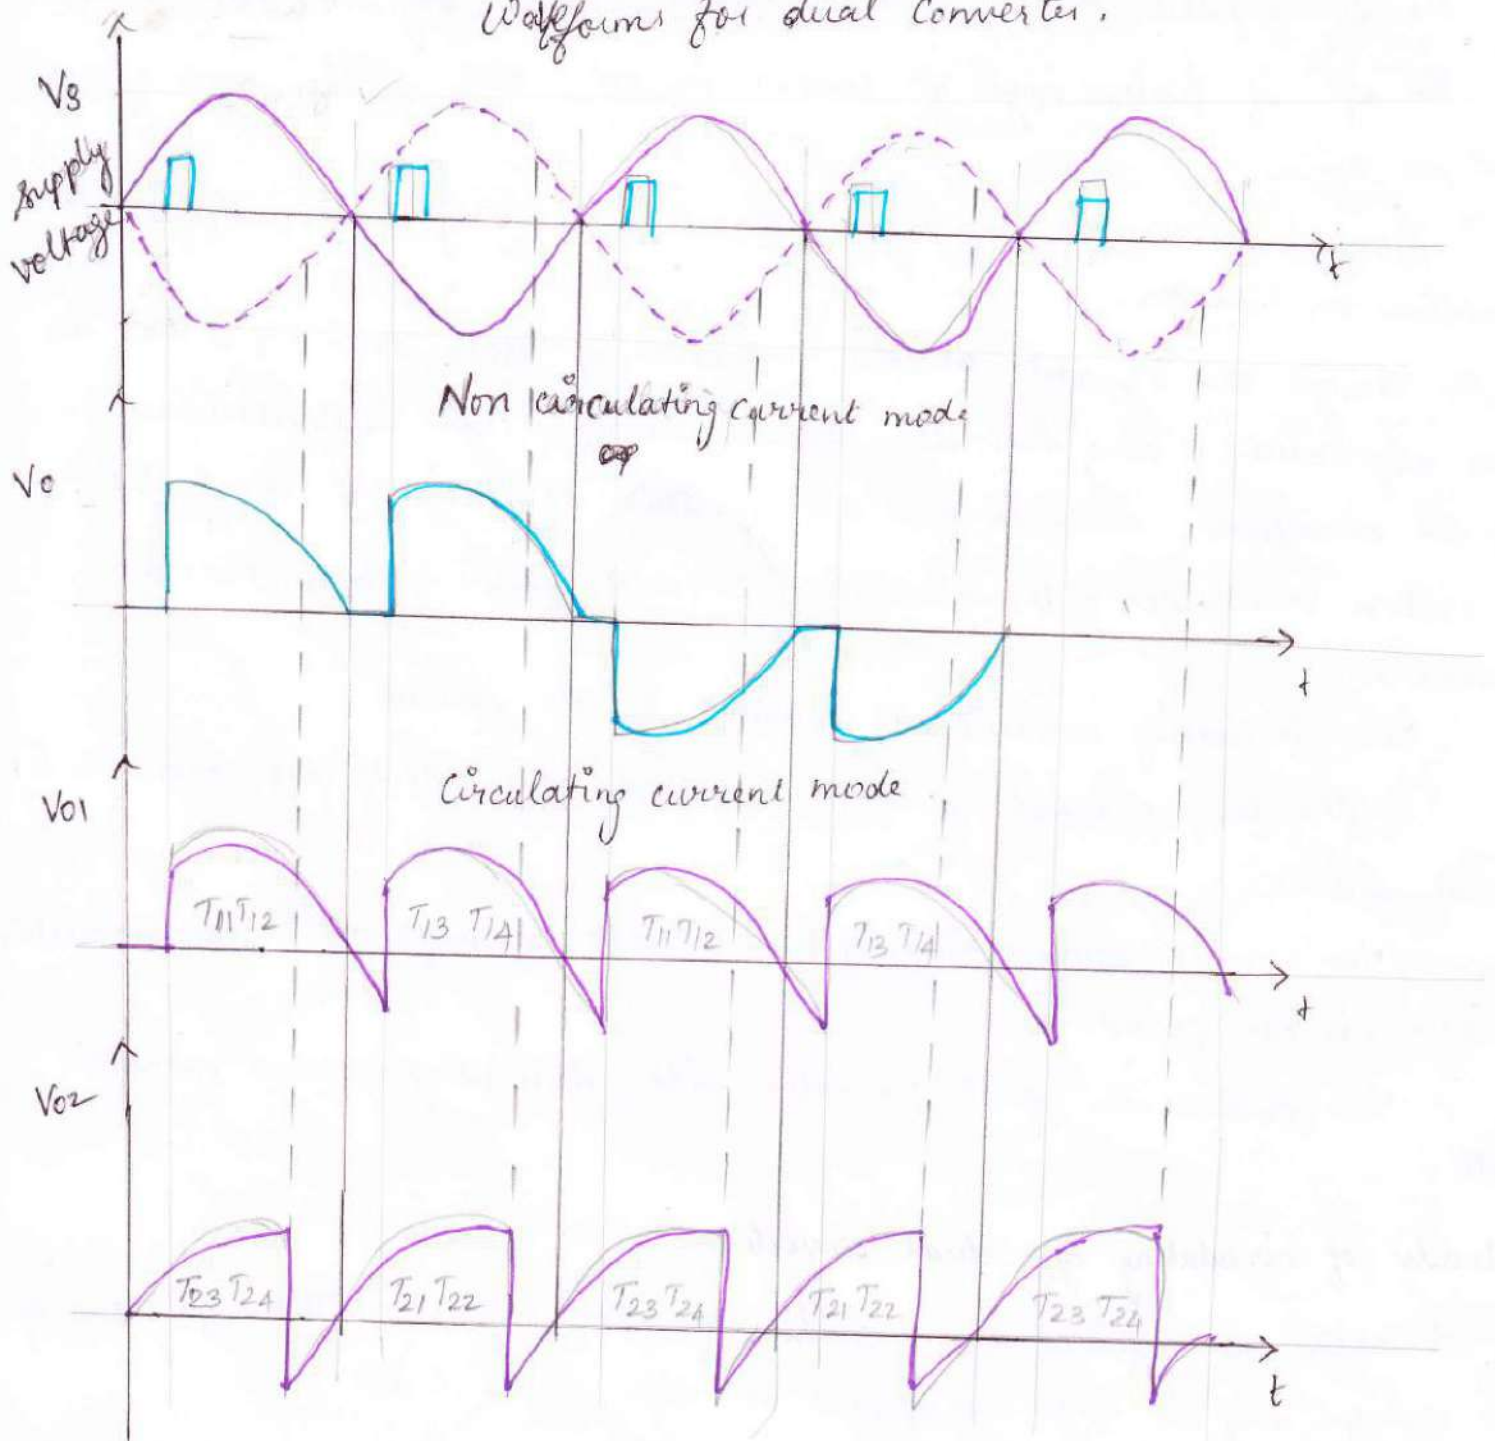 Waveforms for dual Converter.
Vs
supply
voltage
t
Non circulating current mode
Vo
t
Circulating current mode
Vo1
T11 T12
T13 T14
T11 T12
T13 T14
t
Vo2
T23 T24
T21 T22
T23 T24
T21 T22
T23 T24
t